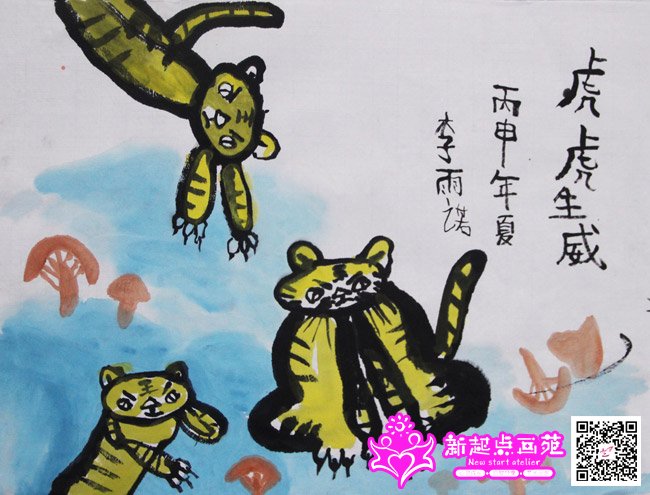 虎虎生威
丙申年夏
李雨诺
新起点画苑
New start atelier